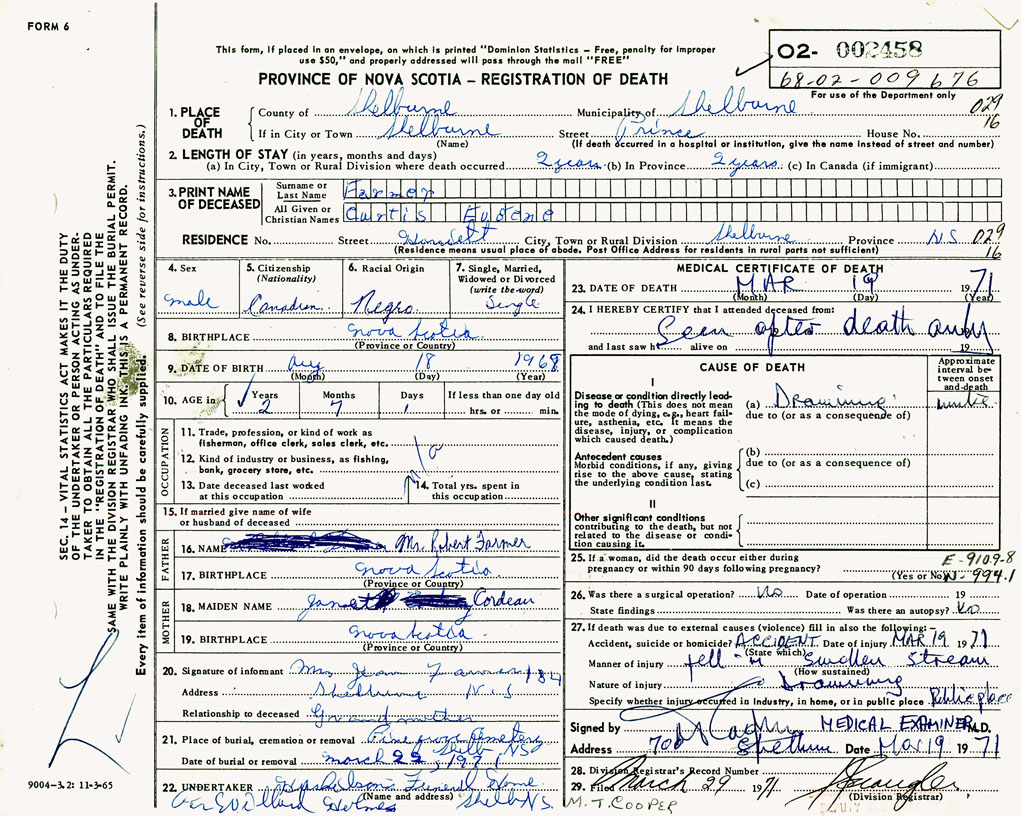 FORM 6
This form, if placed in an envelope, on which is printed "Dominion Statistics – Free, penalty for improper
use $50," and properly addressed will pass through the mail "FREE"
PROVINCE OF NOVA SCOTIA – REGISTRATION OF DEATH
02- 002458
68-02-009676
For use of the Department only
029
16
1. PLACE OF DEATH
County of Shelburne Municipality of Shelburne
If in City or Town Shelburne Street Prince House No.
(Name) (If death occurred in a hospital or institution, give the name instead of street and number)
2. LENGTH OF STAY (in years, months and days)
(a) In City, Town or Rural Division where death occurred 2 years (b) In Province 2 years (c) In Canada (if immigrant)
3. PRINT NAME OF DECEASED
Surname or Last Name Farmer
All Given or Christian Names Curtis Eugene
RESIDENCE No. Street City, Town or Rural Division Shelburne Province NS 029
(Residence means usual place of abode. Post Office Address for residents in rural parts not sufficient) 16
4. Sex male
5. Citizenship (Nationality) Canadian
6. Racial Origin Negro
7. Single, Married, Widowed or Divorced (write the word) Single
8. BIRTHPLACE Nova Scotia
(Province or Country)
9. DATE OF BIRTH Aug 18 1968
(Month) (Day) (Year)
10. AGE in Years 2 Months 7 Days 1 If less than one day old hrs. or min.
OCCUPATION
11. Trade, profession, or kind of work as
fisherman, office clerk, sales clerk, etc.
12. Kind of industry or business, as fishing,
bank, grocery store, etc.
13. Date deceased last worked
at this occupation
14. Total yrs. spent in
this occupation
15. If married give name of wife
or husband of deceased
FATHER
16. NAME Mr. Robert Farmer
17. BIRTHPLACE Nova Scotia
(Province or Country)
MOTHER
18. MAIDEN NAME Cordeau
19. BIRTHPLACE Nova Scotia
(Province or Country)
20. Signature of informant Mrs Jean Farmer
Address Shelburne N.S
Relationship to deceased Grandmother
21. Place of burial, cremation or removal Pine Grove Cemetery
Shelb NS
Date of burial or removal March 22, 1971
22. UNDERTAKER Funeral Home
(Name and address) Shelb NS.
MEDICAL CERTIFICATE OF DEATH
23. DATE OF DEATH MAR 19 1971
(Month) (Day) (Year)
24. I HEREBY CERTIFY that I attended deceased from:
Seen after death only
and last saw h alive on 19
CAUSE OF DEATH
Approximate interval between onset and death
I
Disease or condition directly leading to death (This does not mean the mode of dying, e.g., heart failure, asthenia, etc. It means the disease, injury, or complication which caused death.)
(a) Drowning
due to (or as a consequence of)
Antecedent causes
Morbid conditions, if any, giving rise to the above cause, stating the underlying condition last.
(b)
due to (or as a consequence of)
(c)
II
Other significant conditions contributing to the death, but not related to the disease or condition causing it.
25. If a woman, did the death occur either during
pregnancy or within 90 days following pregnancy?
(Yes or No)
E-9109-8
N-994.1
26. Was there a surgical operation? No Date of operation 19
State findings Was there an autopsy? No
27. If death was due to external causes (violence) fill in also the following:–
Accident, suicide or homicide? ACCIDENT Date of injury MAR 19 1971
(State which)
Manner of injury fell in swollen stream
(How sustained)
Nature of injury Drowning
Specify whether injury occurred in Industry, in home, or in public place Public place
Signed by MEDICAL EXAMINER M.D.
Address Shelburne Date Mar 19 1971
28. Division Registrar's Record Number
29. Filed March 29 1971
(Division Registrar)
M.T. COOPER
SEC. 14 – VITAL STATISTICS ACT MAKES IT THE DUTY
OF THE UNDERTAKER OR PERSON ACTING AS UNDERTAKER TO OBTAIN ALL THE PARTICULARS REQUIRED
IN THE "REGISTRATION OF DEATH" AND TO FILE THE
SAME WITH THE DIVISION REGISTRAR WHO SHALL ISSUE THE BURIAL PERMIT.
WRITE PLAINLY WITH UNFADING INK. THIS IS A PERMANENT RECORD.
Every item of information should be carefully supplied. (See reverse side for instructions.)
9004-3.2: 11-3-65